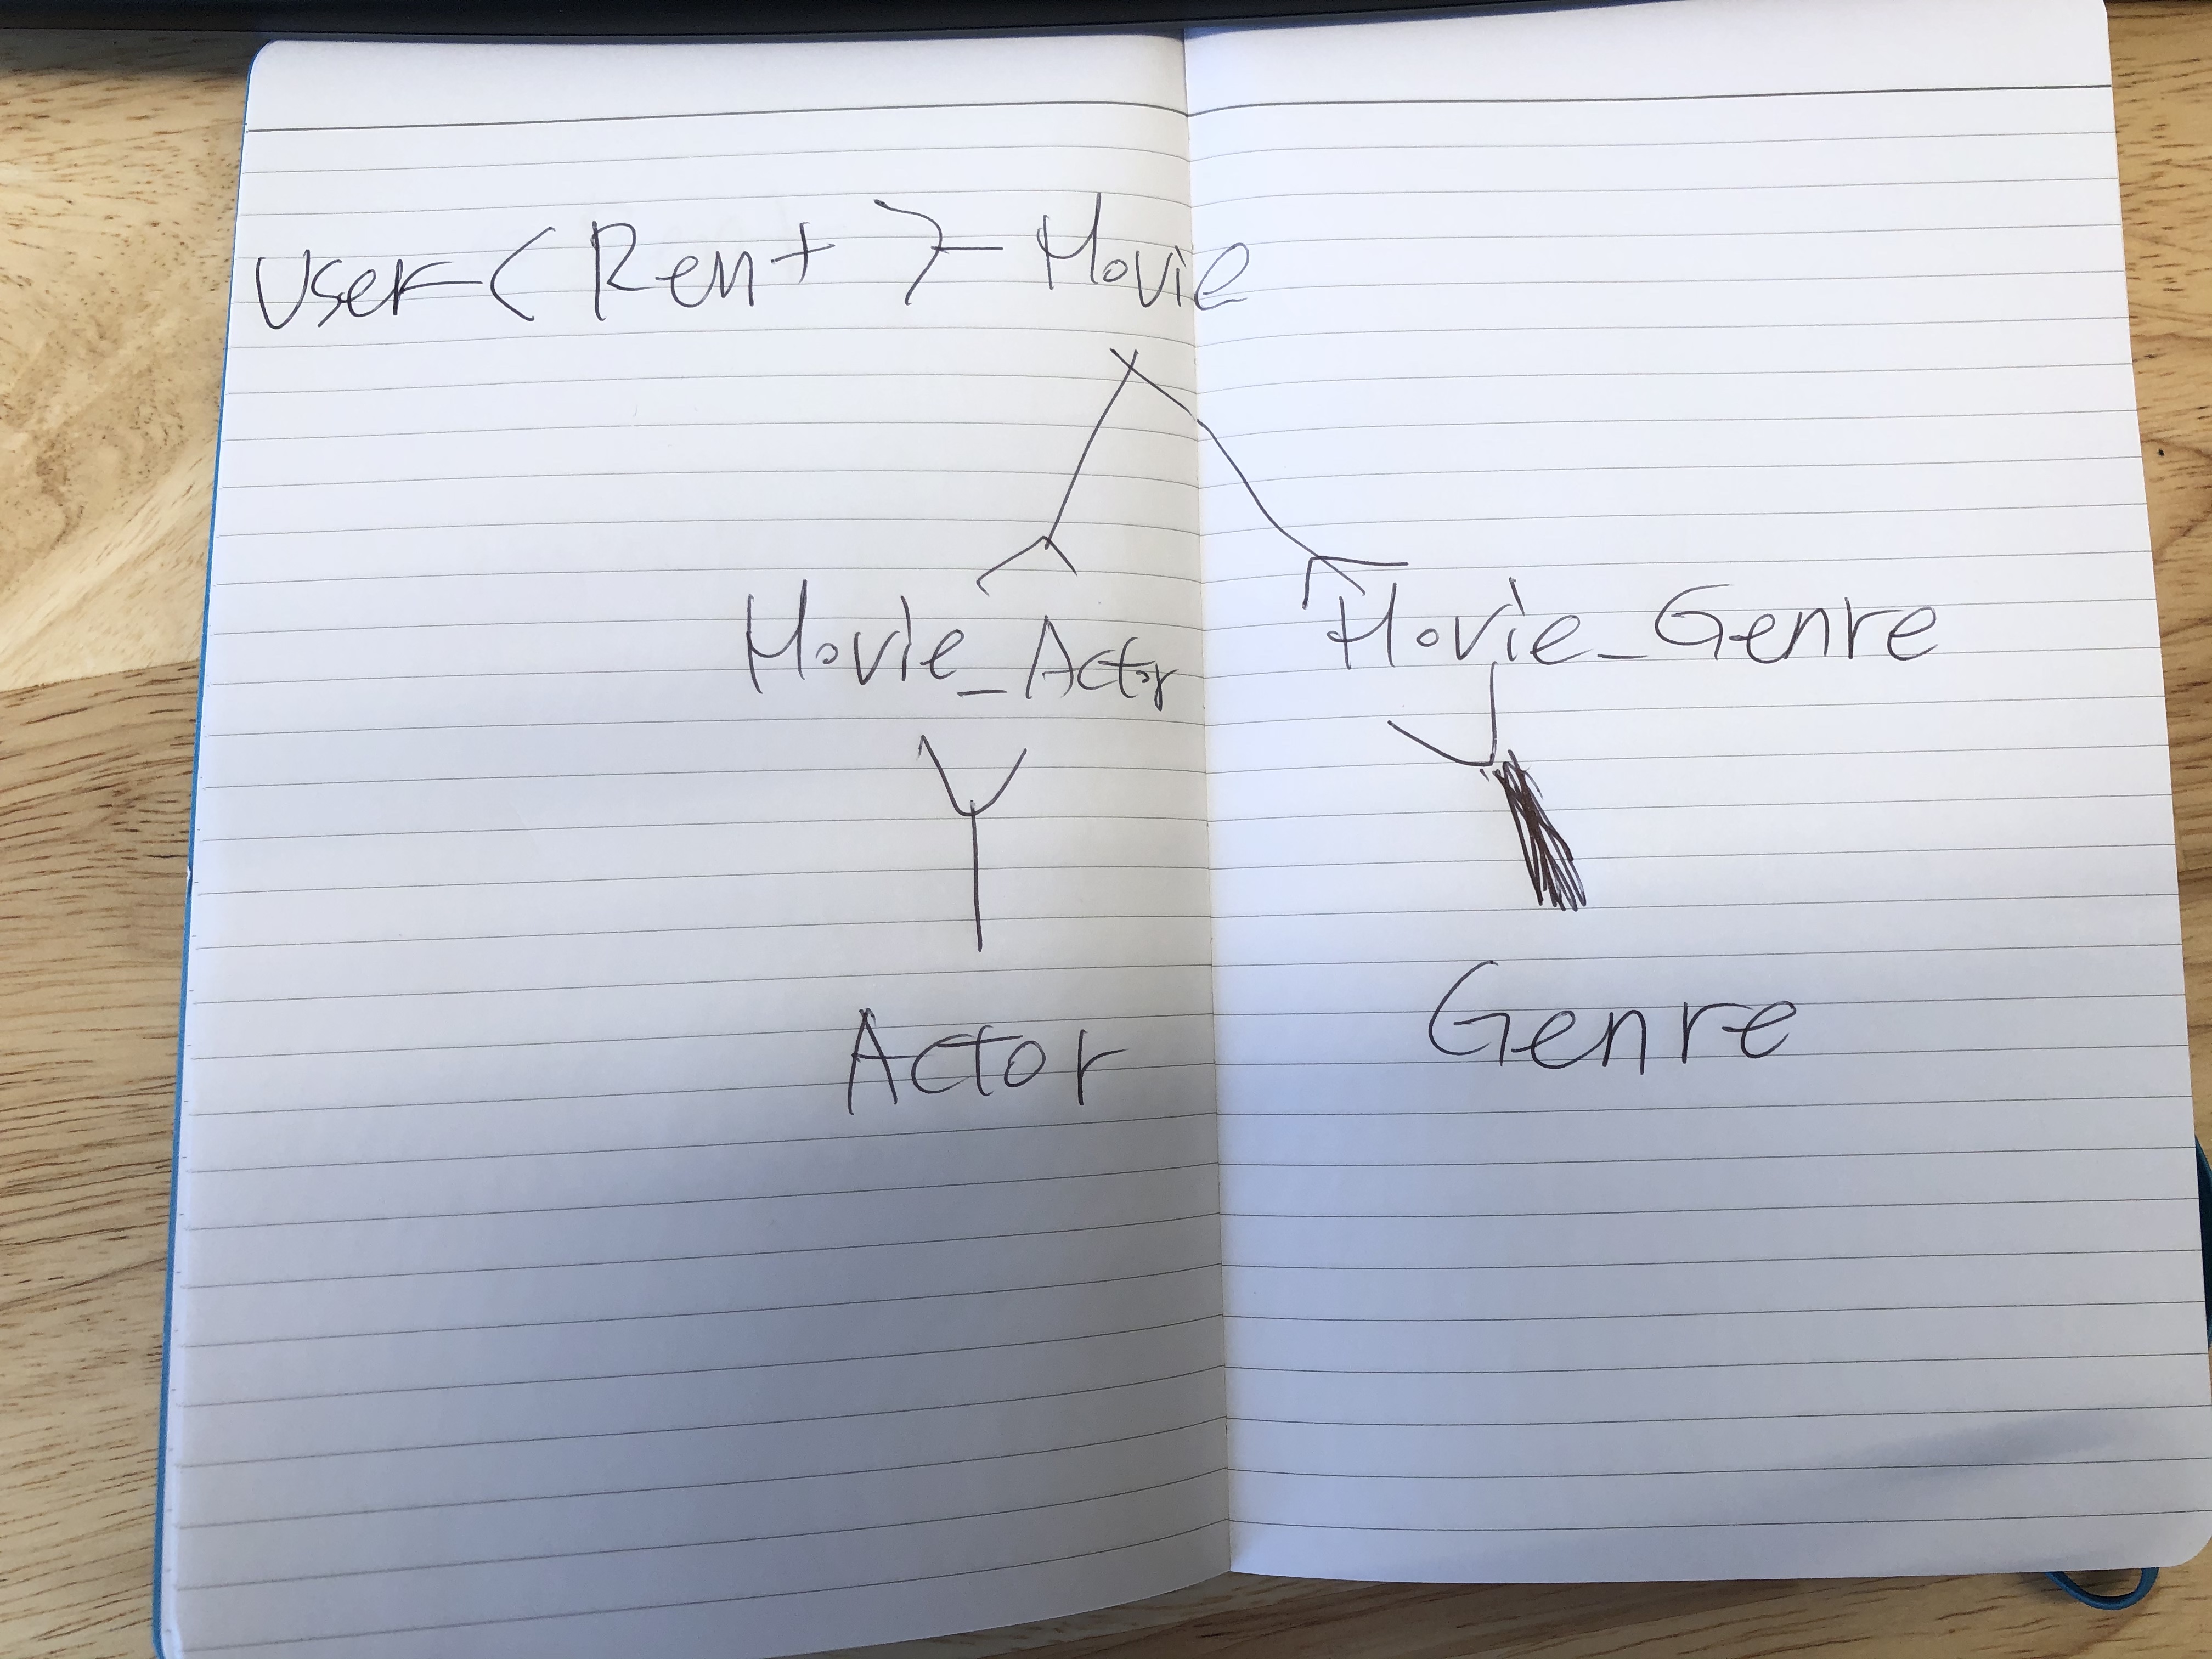 User Rent Movie
Movie_Actor Movie_Genre
Actor Genre